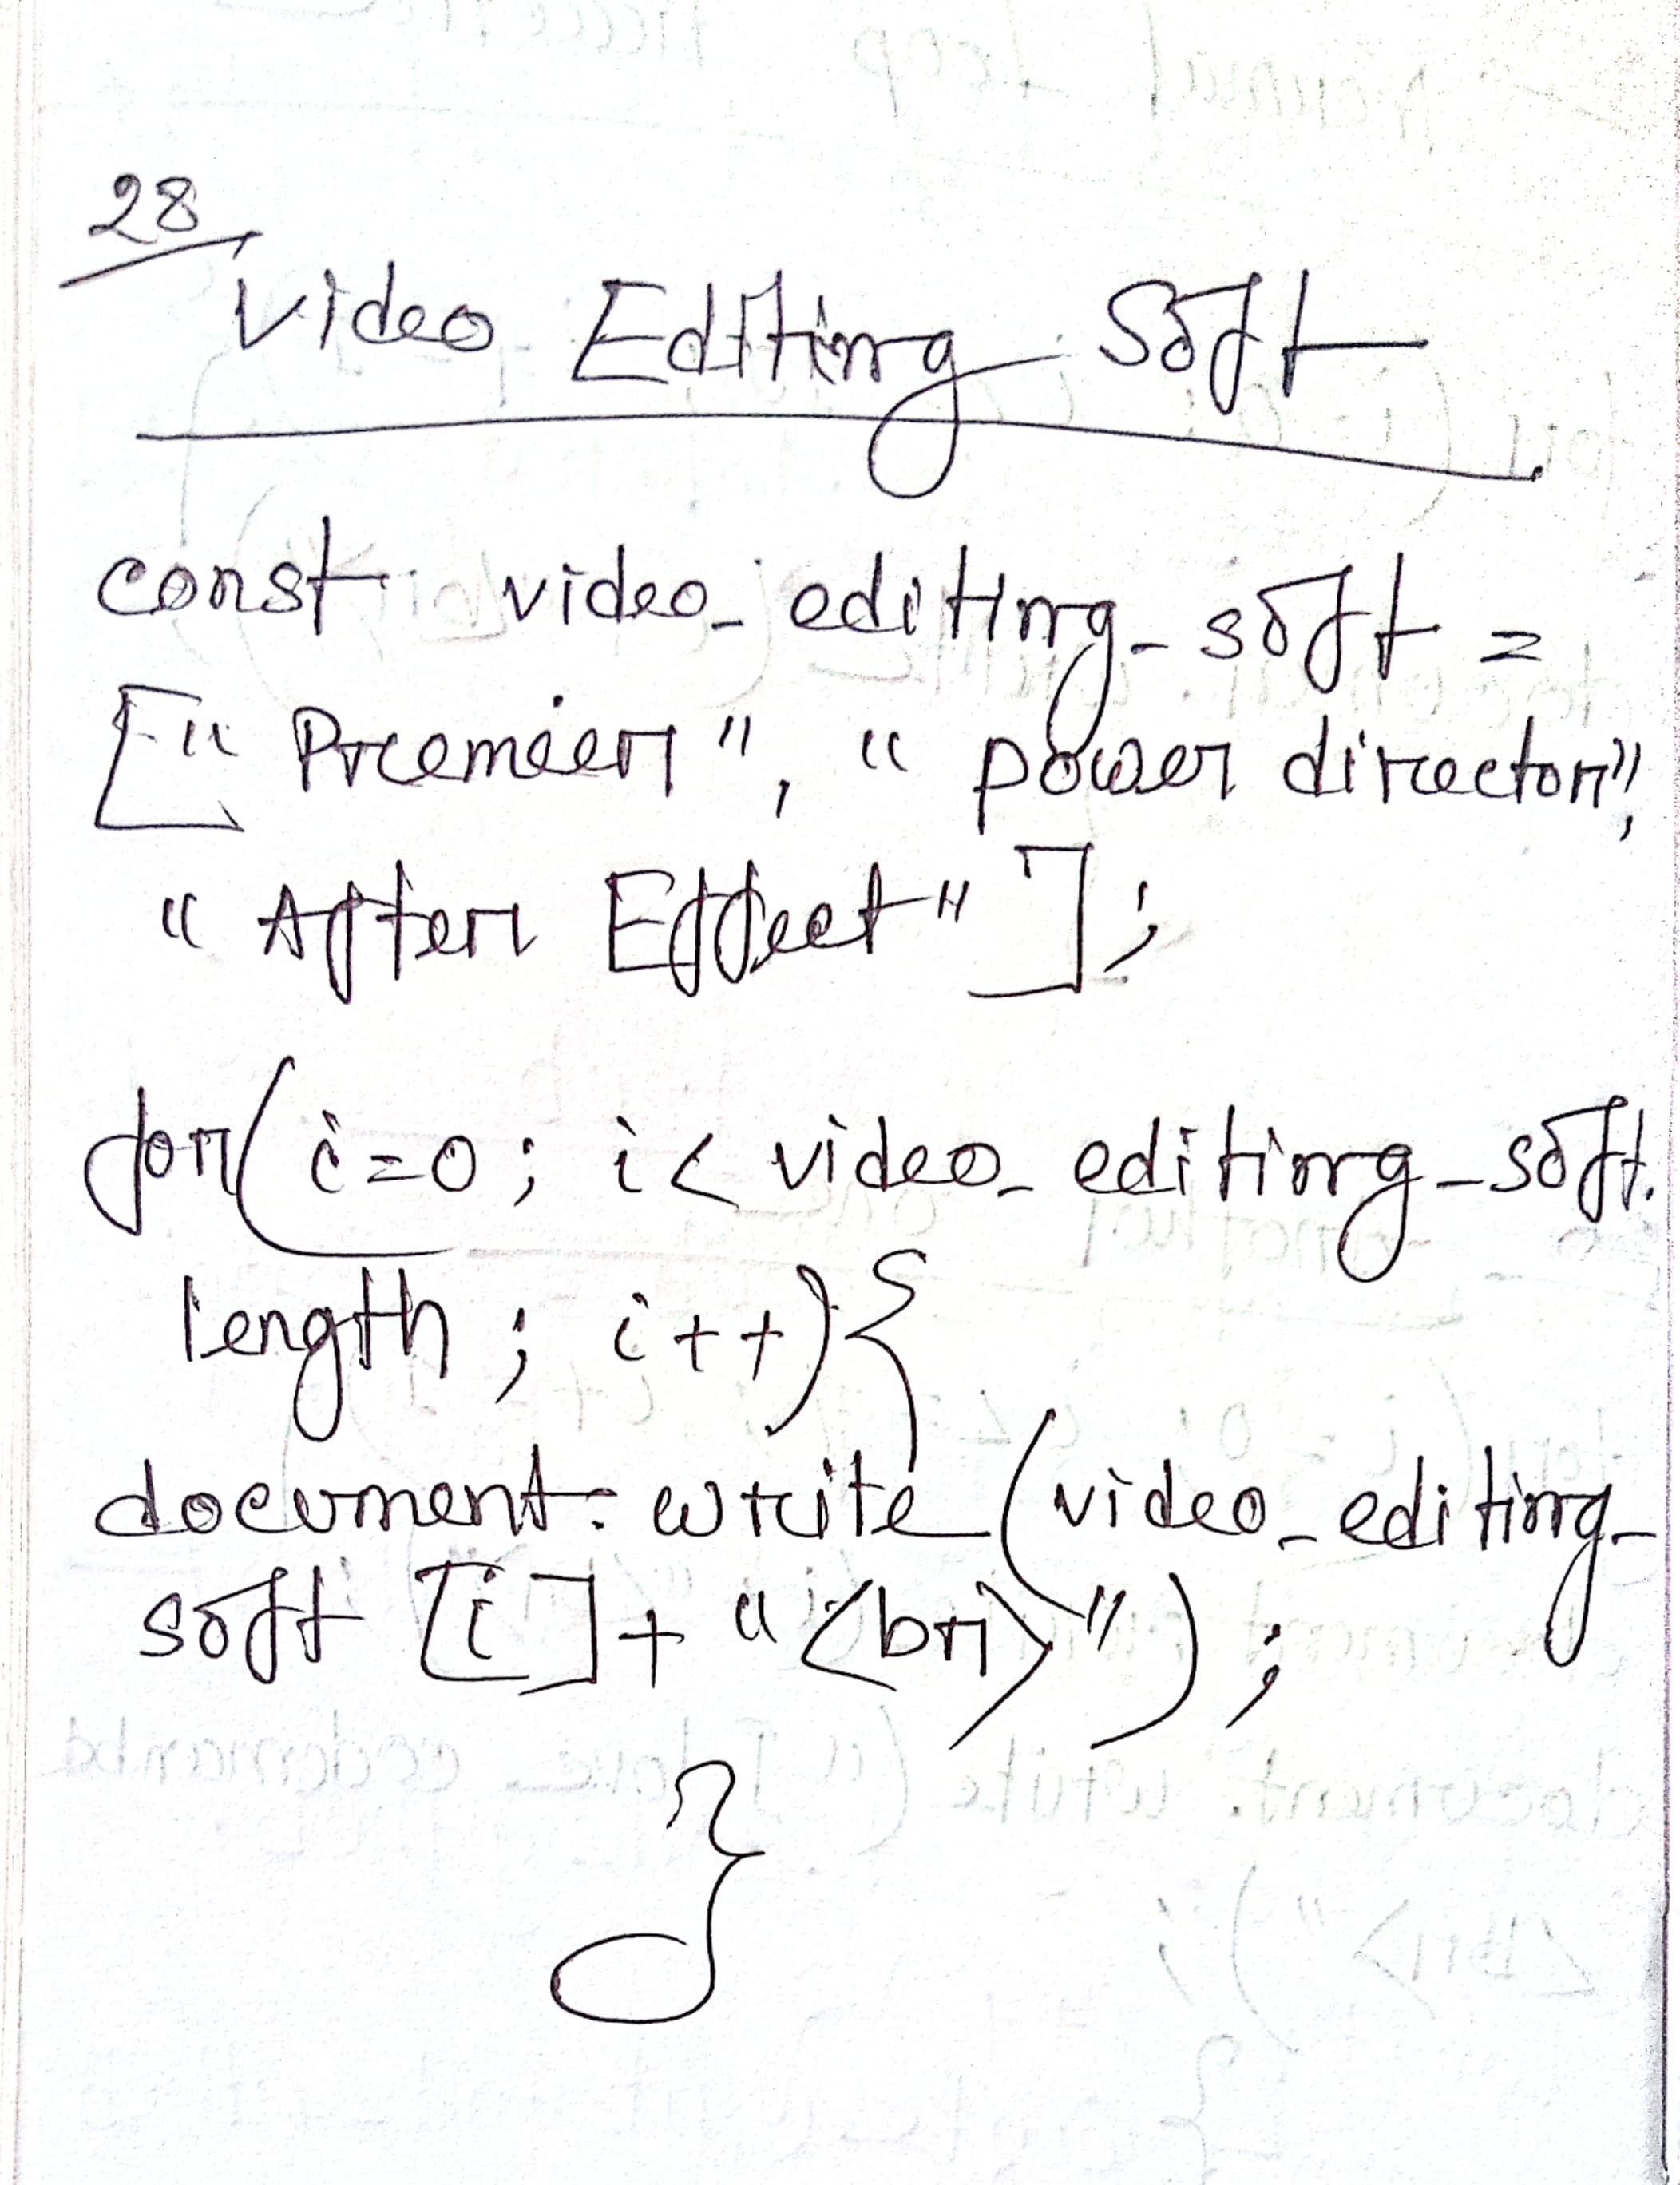 28
Video Editing Soft
const video_editing_soft =
["Premier", "power director",
"After Effect"];
for(i=0; i< video_editing_soft.
length; i++){
document.write(video_editing_
soft [i]+ "<br>");
}